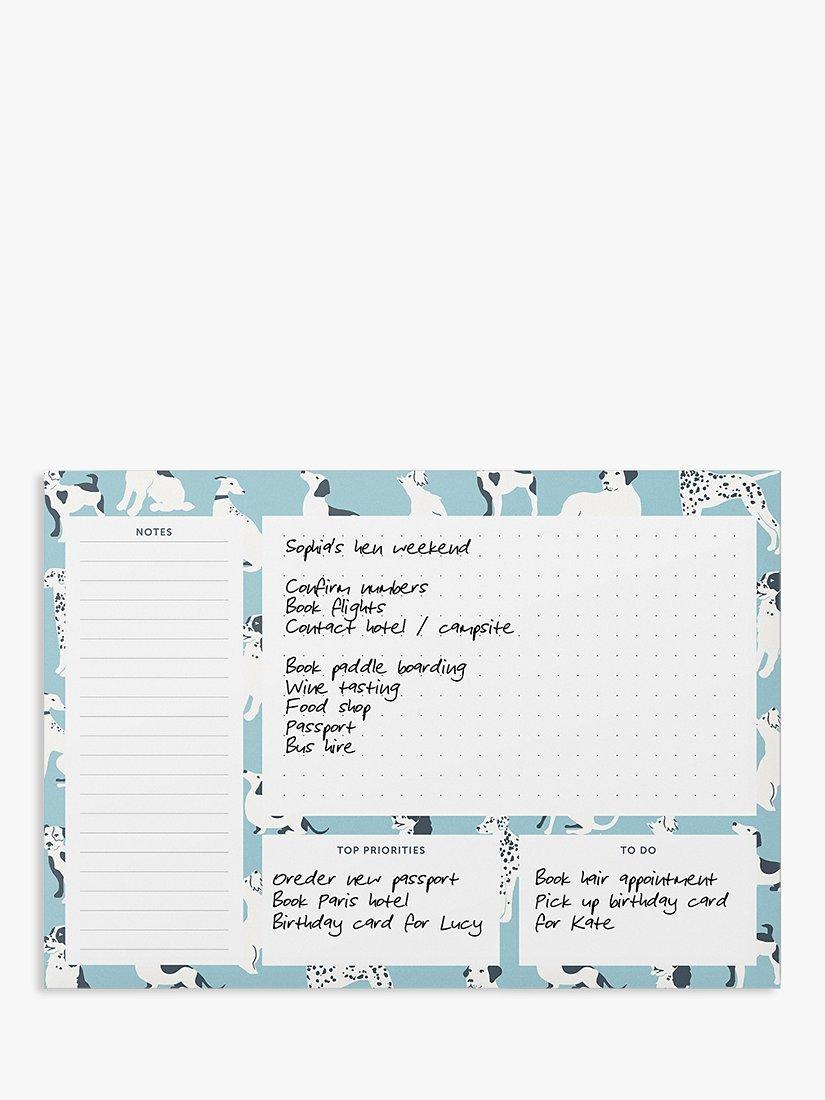 NOTES
Sophia's hen weekend
Confirm numbers
Book flights
Contact hotel / campsite
Book paddle boarding
Wine tasting
Food shop
Passport
Bus hire
TOP PRIORITIES
Oreder new passport
Book Paris hotel
Birthday card for Lucy
TO DO
Book hair appointment
Pick up birthday card
for Kate